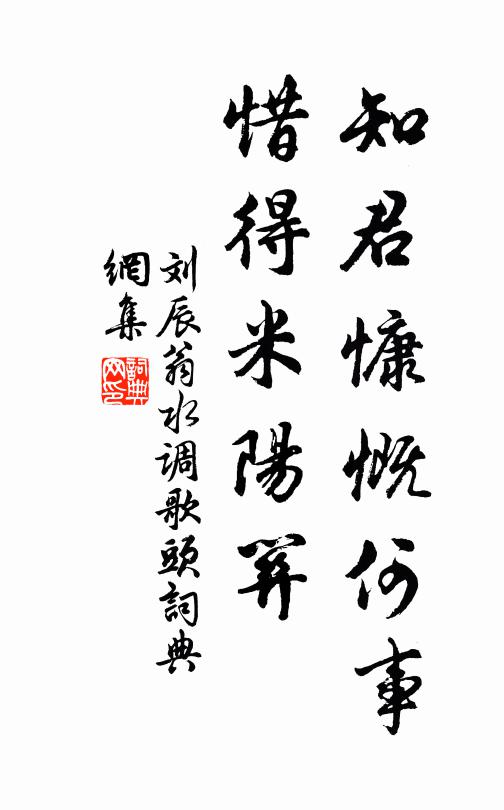 知君慷慨何事
惜得米陽笄
刘辰翁水调歌頭詞典
網集
詞典
网印